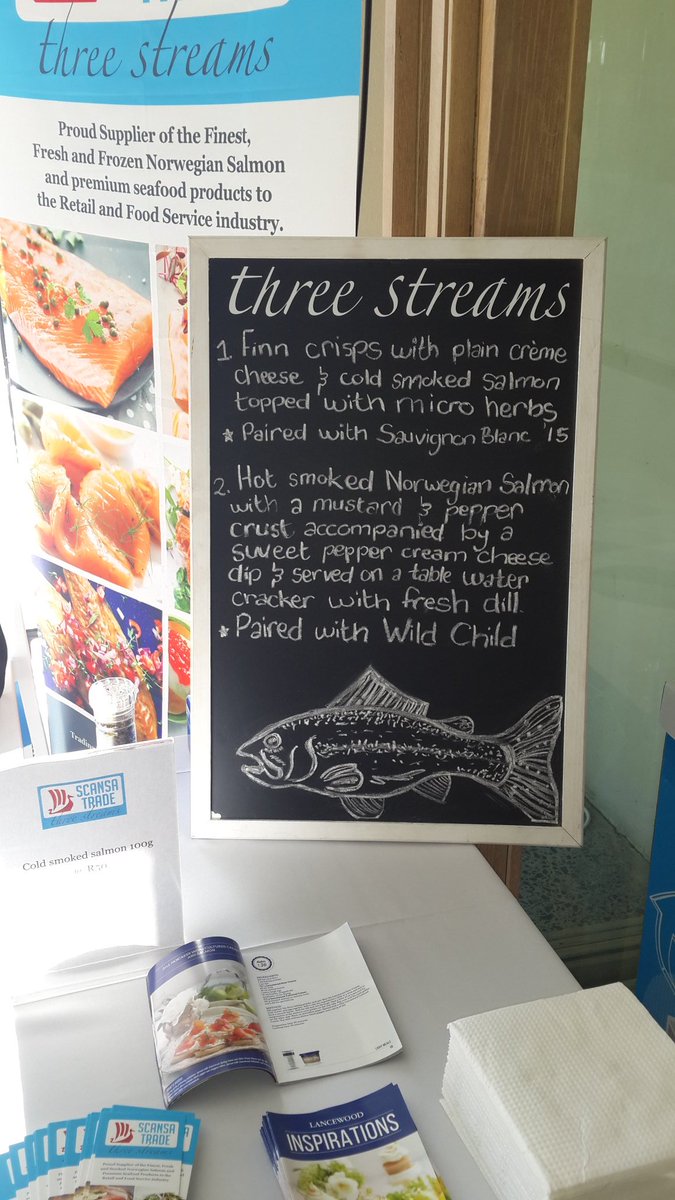 three streams
Proud Supplier of the Finest,
Fresh and Frozen Norwegian Salmon
and premium seafood products to
the Retail and Food Service industry.
three streams
1 Finn crisps with plain crème
cheese & cold smoked salmon
topped with micro herbs
* Paired with Sauvignon Blanc '15
2. Hot smoked Norwegian Salmon
with a mustard & pepper
crust accompanied by a
sweet pepper cream cheese
dip & served on a table water
cracker with fresh dill.
* Paired with Wild Child
SCANSA
TRADE
three streams
Cold smoked salmon 100g
R70
LANCEWOOD
INSPIRATIONS
SCANSA
TRADE
three streams
Proud Supplier of the Finest, Fresh
and Smoked Norwegian Salmon and
Premium Seafood Products to
the Retail and Food Service
industry